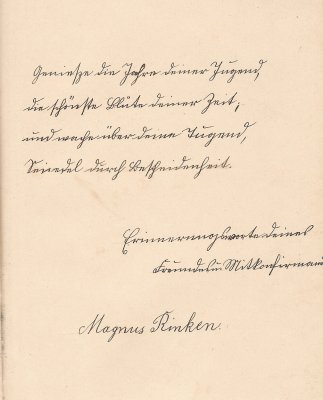 Genieße die Jahre deiner Jugend,
die schönste Blüte deiner Zeit,
und wache über deine Tugend,
Sei edel durch Bescheidenheit.
Erinnerungsworte deines
Freundes u Mitkonfirmand
Magnus Rinken.